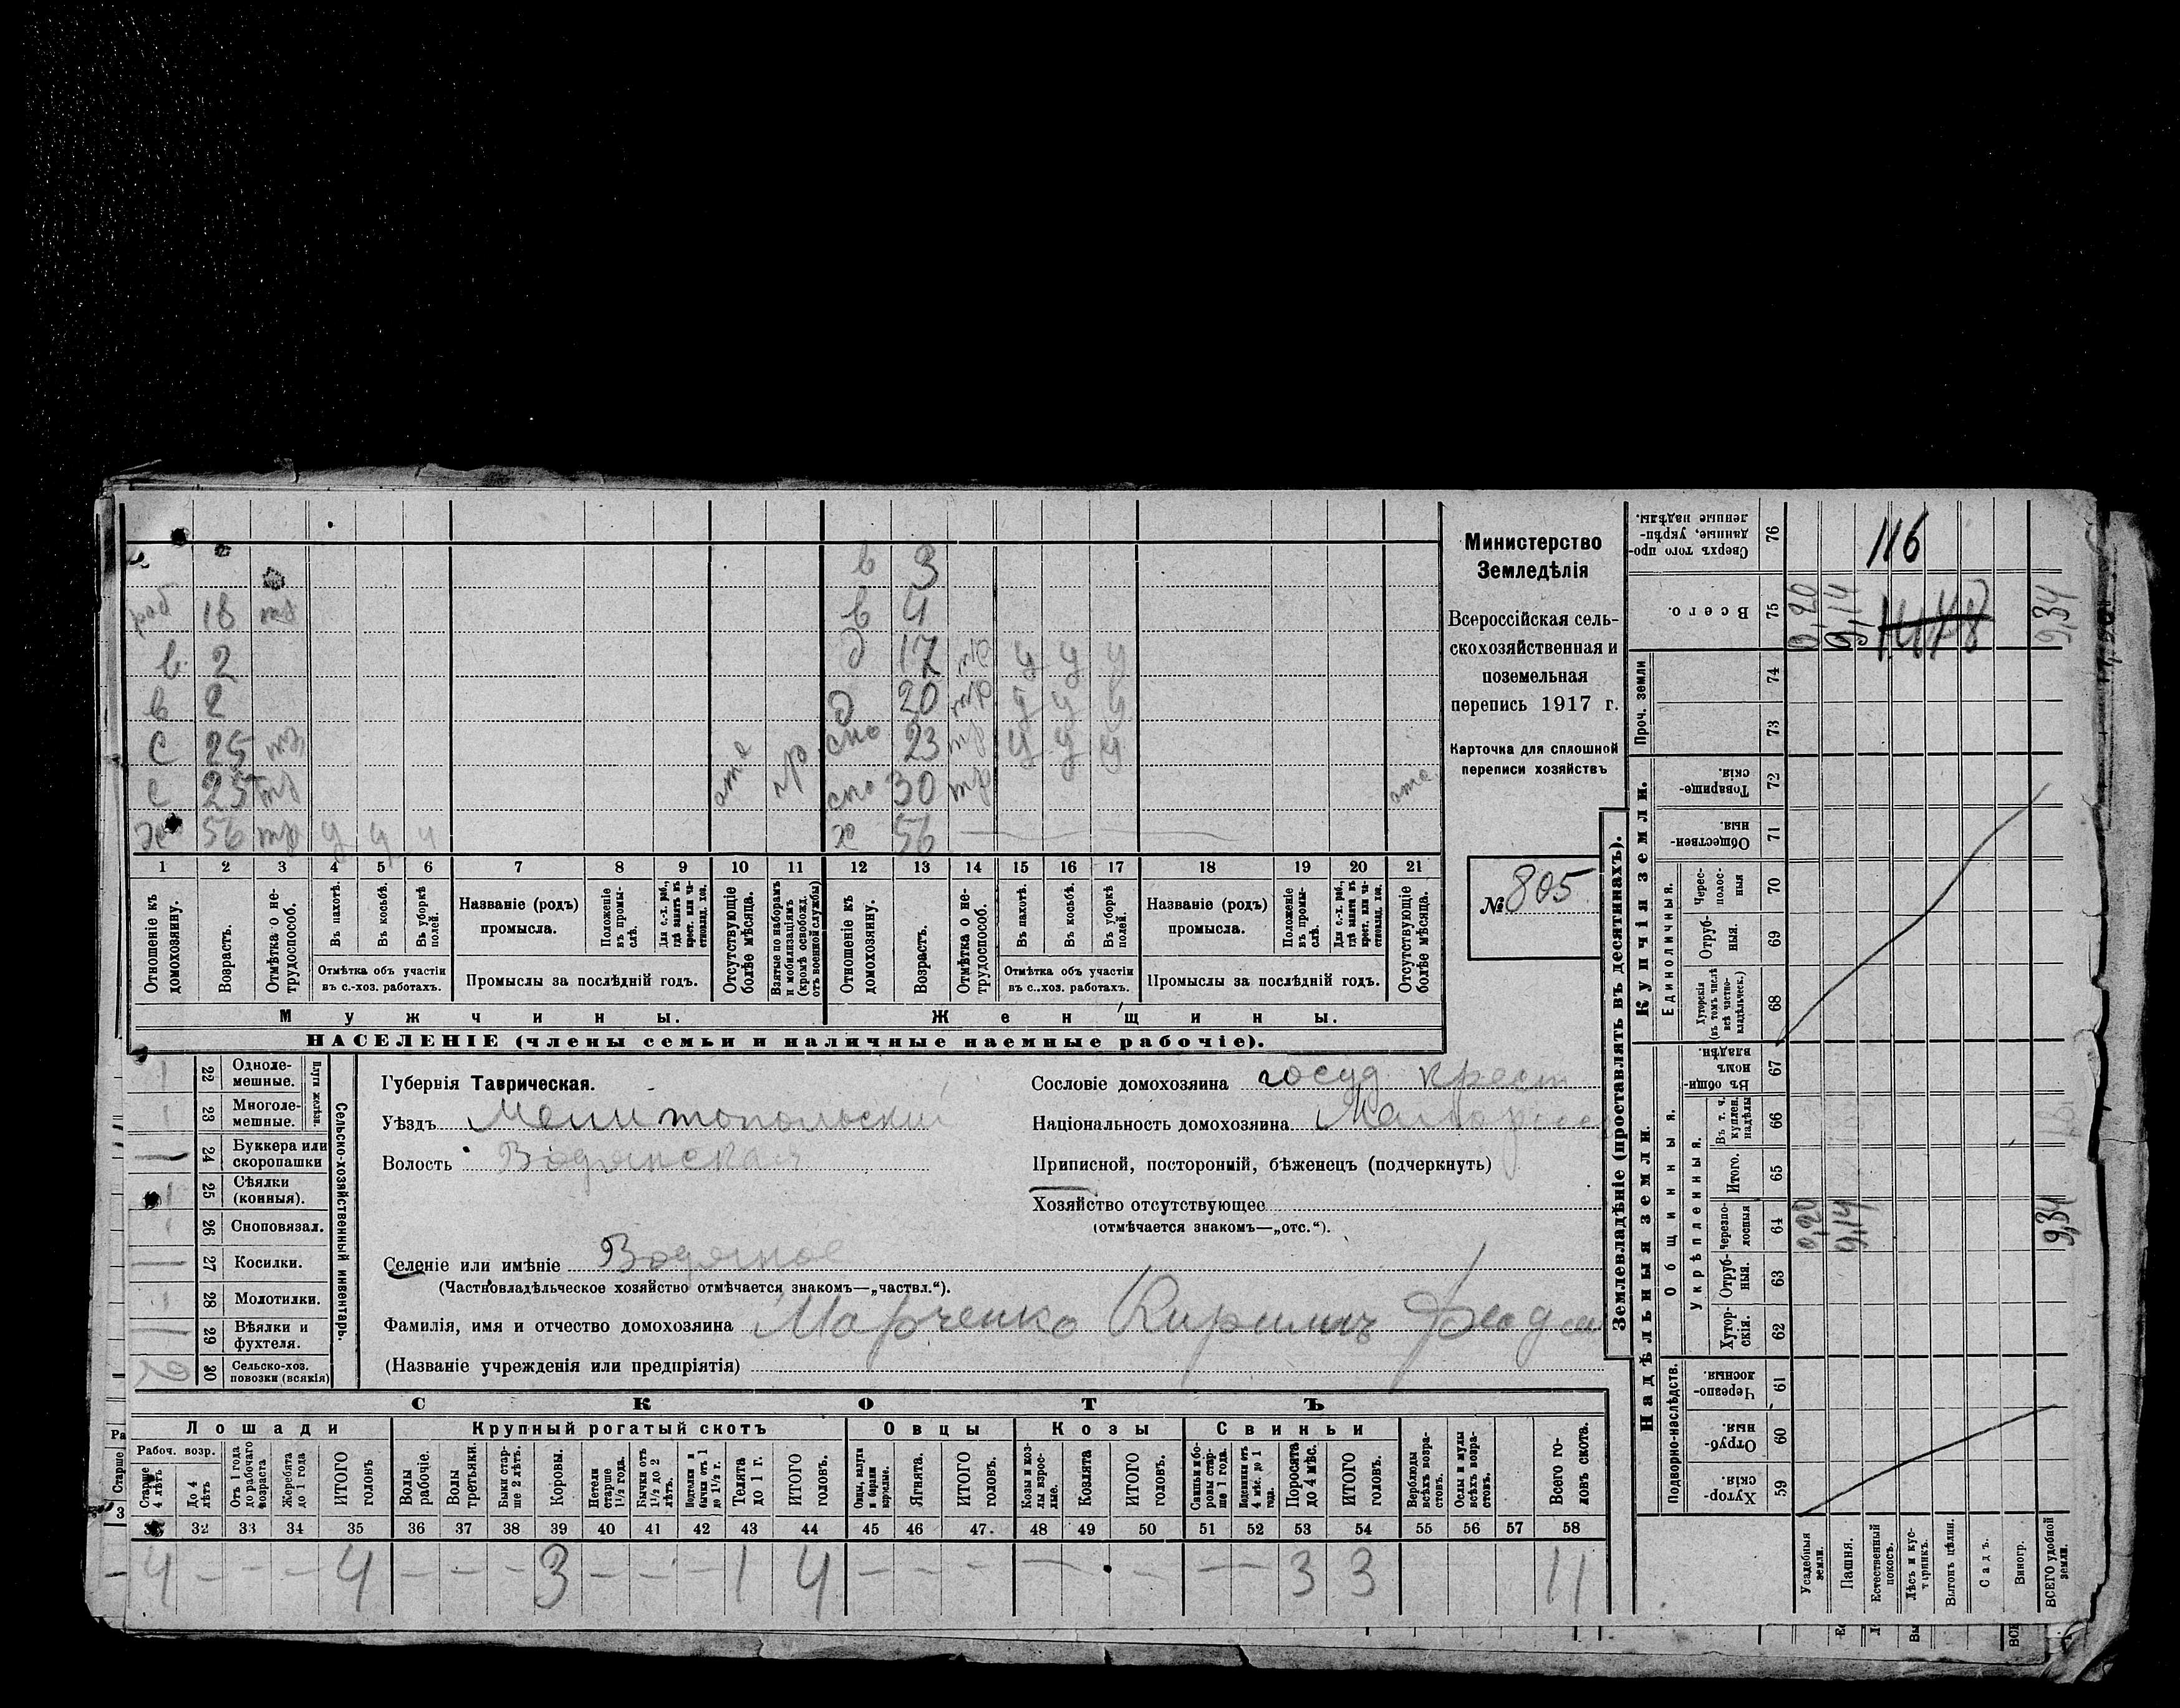 в 3
раб 18 тр в 4
в 2 д 17 тр у у у
в 2 д 20 тр у у у
с 25 тр сно 23 тр у у у
с 25 тр отс сно 30 тр отс.
х 56 тр у у у х 56
1 2 3 4 5 6 7 8 9 10 11 12 13 14 15 16 17 18 19 20 21
Отношеніе къ домохозяину.
Возрастъ.
Отмѣтка о не-трудоспособ.
Въ пахотѣ.
Въ косьбѣ.
Въ уборкѣ полей.
Отмѣтка объ участіи
въ с.-хоз. работахъ.
Названіе (родъ)
промысла.
Положеніе въ промы-слѣ.
Для с.-х. раб., гдѣ занятъ въ крест. или ча-стновлад. хоз.
Промыслы за послѣдній годъ.
Отсутствующіе болѣе мѣсяца.
Взятые по наборамъ и мобилизаціямъ (кромѣ освобожд. отъ военной службы)
Отношеніе къ домохозяину.
Возрастъ.
Отмѣтка о не-трудоспособ.
Въ пахотѣ.
Въ косьбѣ.
Въ уборкѣ полей.
Отмѣтка объ участіи
въ с.-хоз. работахъ.
Названіе (родъ)
промысла.
Положеніе въ промы-слѣ.
Для с.-х. раб., гдѣ занята въ крест. или ча-стновлад. хоз.
Промыслы за послѣдній годъ.
Отсутствующіе болѣе мѣсяца.
Мужчины. Женщины.
НАСЕЛЕНІЕ (члены семьи и наличные наемные рабочіе).
Министерство
Земледѣлія
Всероссійская сель-
скохозяйственная и
поземельная
перепись 1917 г.
Карточка для сплошной
переписи хозяйствъ
№ 805
22 Одноле-мешные.
23 Многоле-мешные.
Плуги желѣзн.
24 Буккера или скоропашки
25 Сѣялки (конныя).
26 Сноповязал.
27 Косилки.
28 Молотилки.
29 Вѣялки и фухтеля.
30 Сельско-хоз. повозки (всякія)
Сельско-хозяйственный инвентарь.
Губернія Таврическая.
Уѣздъ Мелитопольскій
Волость Водянская
Селеніе или имѣніе Водяное
(Частновладѣльческое хозяйство отмѣчается знакомъ—„частвл.“).
Фамилія, имя и отчество домохозяина Марченко Кириллъ Феод
(Названіе учрежденія или предпріятія)
Сословіе домохозяина госуд крест
Національность домохозяина Малоросс
Приписной, посторонній, бѣженецъ (подчеркнуть)
Хозяйство отсутствующее
(отмѣчается знакомъ—„отс.“).
СКОТЪ
Лошади Крупный рогатый скотъ Овцы Козы Свиньи
Рабоч. возр.
Старше 4 лѣтъ
До 4 лѣтъ
Отъ 1 года до рабочаго возраста
Жеребята до 1 года
ИТОГО головъ
Волы рабочіе.
Волы третьяки.
Быки стар-ше 2 лѣтъ.
Коровы.
Нетели старше 1½ года.
Бычки отъ 1½ до 2 лѣтъ.
Подтелки и бычки отъ 1 до 1½ г.
Телята до 1 г.
ИТОГО головъ.
Овцы, валухи и бараны взрослые.
Ягнята.
ИТОГО головъ.
Козы и коз-лы взрос-лые.
Козлята
ИТОГО головъ.
Свиньи и бо-ровы стар-ше 1 года.
Подсвинки отъ 4 мѣс. до 1 года.
Поросята до 4 мѣс.
ИТОГО головъ.
Верблюды всѣхъ возра-стовъ.
Ослы и мулы всѣхъ возра-стовъ.
Всего го-ловъ скота.
32 33 34 35 36 37 38 39 40 41 42 43 44 45 46 47. 48 49 50 51 52 53 54 55 56 57 58
4 – – – 4 – – – 3 – – – 1 4 – – – – – – – 3 3 11
Землевладѣніе (проставлять въ десятинахъ).
Надѣльныя земли. Купчія земли. Проч. земли
Подворно-наслѣдств.
Общинныя.
Укрѣпленныя.
Единоличныя.
Хутор-скія. 59
Отруб-ныя. 60
Черезпо-лосныя. 61
Хутор-скія. 62
Отруб-ныя. 63
Черезпо-лосныя 64
Итого. 65
Въ т. ч. куплен. надѣлы 66
Въ общин-номъ владѣн. 67
Хуторскія (въ томъ числѣ всѣ частно-владѣльческ.) 68
Отруб-ныя. 69
Черес-полос-ныя 70
Обществен-ныя. 71
Товарище-скія. 72
73
74
Всего. 75
Сверхъ того про-данные, укрѣп-ленные надѣлы. 76
Усадебныя земли.
Пашня.
Естественный покосъ.
Лѣсъ и кус-тарникъ.
Выгонъ цѣлин.
Садъ.
Виногр.
ВСЕГО удобной земли.
0,20 9,14 9,34
0,20 9,14 9,34
116